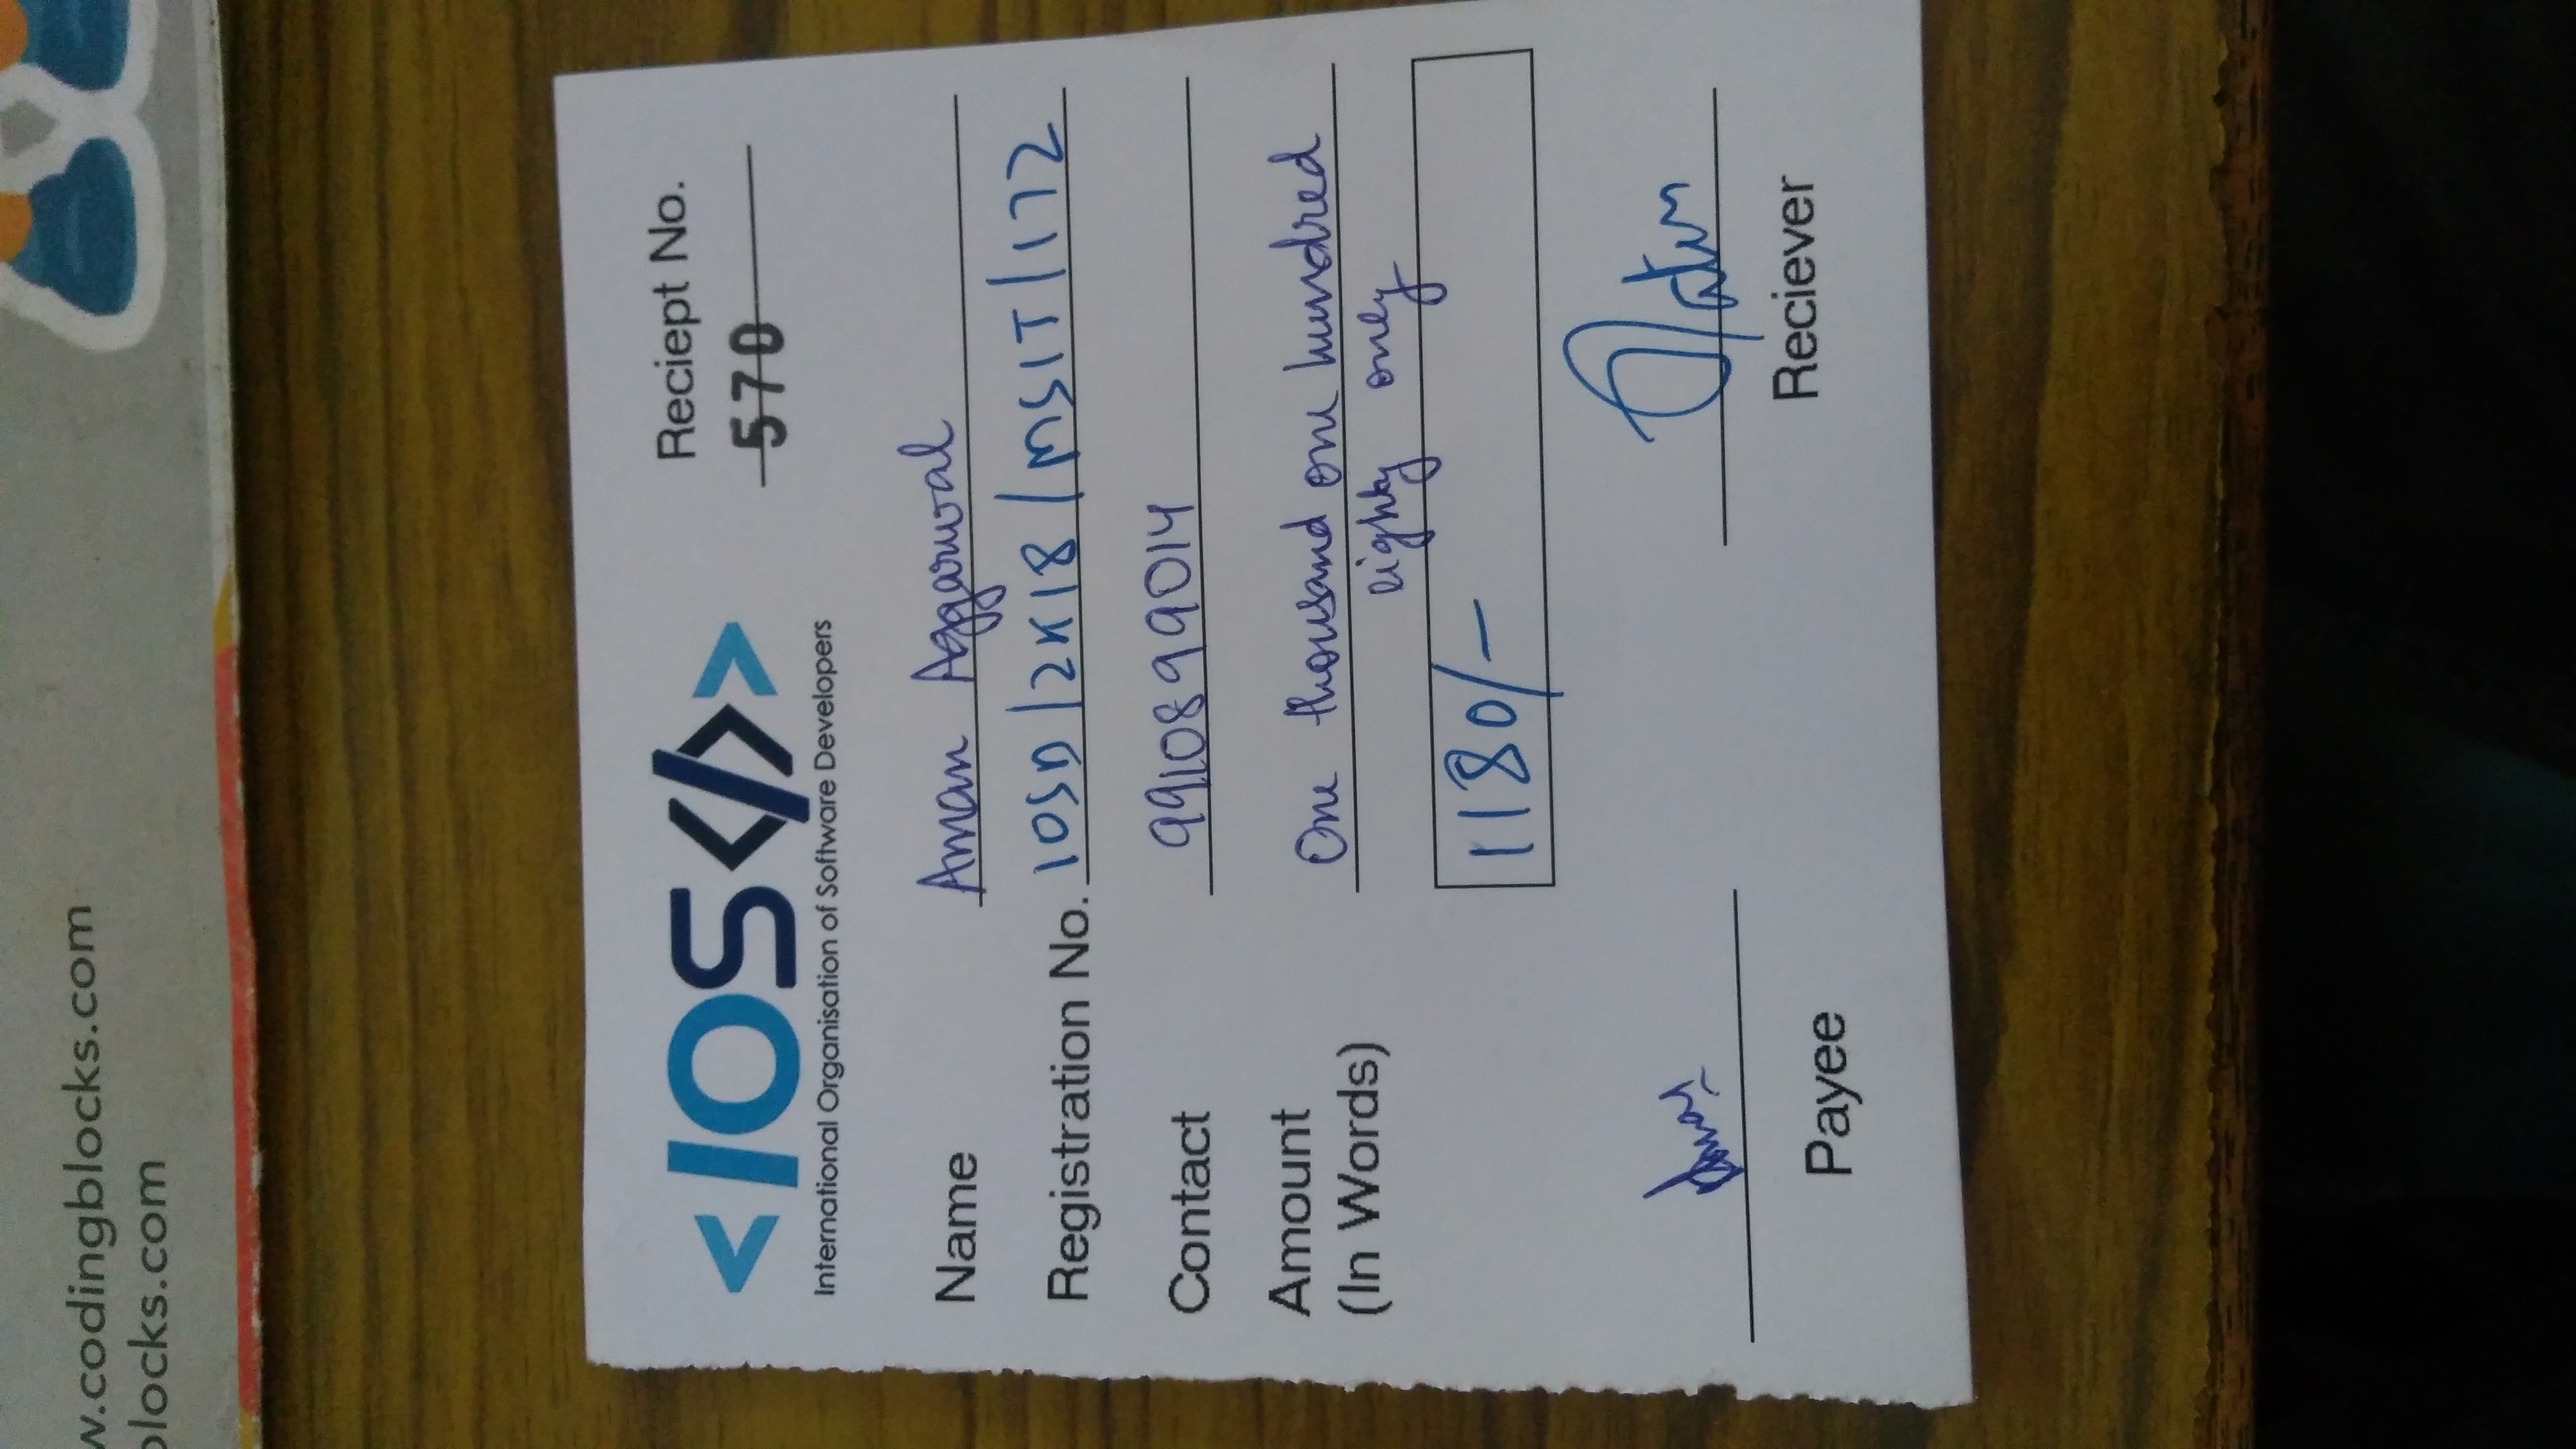 w.codingblocks.com
blocks.com
<IOS</>>
International Organisation of Software Developers
Reciept No.
570
Name Aman Aggarwal
Registration No. IOSD/2K18/MSIT/172
Contact 9910899014
Amount One thousand one hundred
(In Words) eighty only
1180/-
Payee Reciever